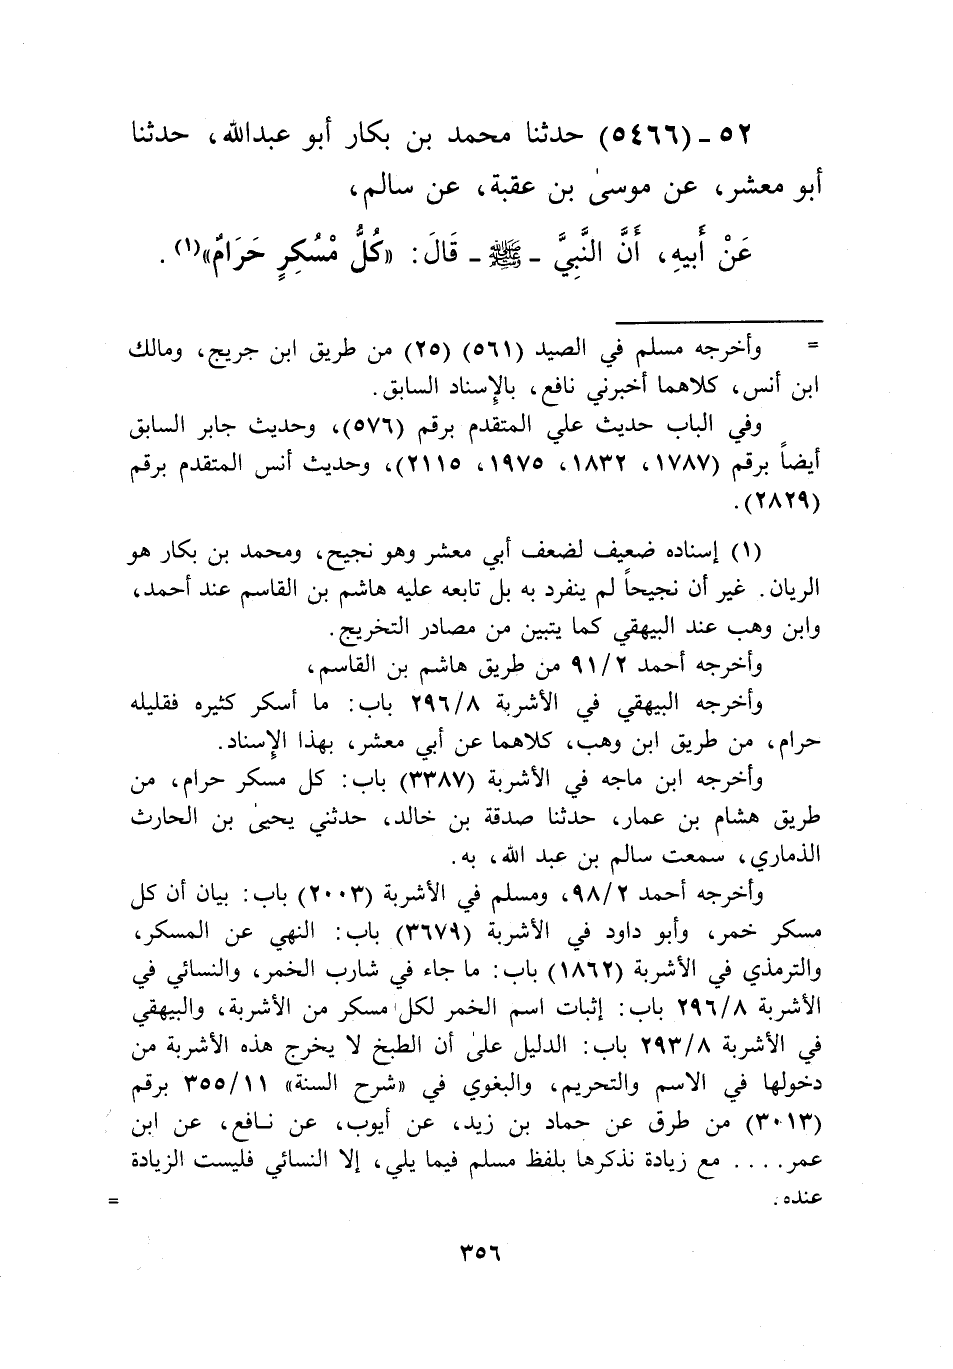 ٥٢ ـ (٥٤٦٦) حدثنا محمد بن بكار أبو عبدالله، حدثنا
أبو معشر، عن موسىٰ بن عقبة، عن سالم،
عَنْ أَبيهِ، أَنَّ النَّبِيَّ ـ ﷺ ـ قَالَ: «كُلُّ مُسْكِرٍ حَرَامٌ»(١).
= وأخرجه مسلم في الصيد (٥٦١) (٢٥) من طريق ابن جريج، ومالك
ابن أنس، كلاهما أخبرني نافع، بالإِسناد السابق.
وفي الباب حديث علي المتقدم برقم (٥٧٦)، وحديث جابر السابق
أيضاً برقم (١٧٨٧، ١٨٣٢، ١٩٧٥، ٢١١٥)، وحديث أنس المتقدم برقم
(٢٨٢٩).
(١) إسناده ضعيف لضعف أبي معشر وهو نجيح، ومحمد بن بكار هو
الريان. غير أن نجيحاً لم ينفرد به بل تابعه عليه هاشم بن القاسم عند أحمد،
وابن وهب عند البيهقي كما يتبين من مصادر التخريج.
وأخرجه أحمد ٩١/٢ من طريق هاشم بن القاسم،
وأخرجه البيهقي في الأشربة ٢٩٦/٨ باب: ما أسكر كثيره فقليله
حرام، من طريق ابن وهب، كلاهما عن أبي معشر، بهذا الإِسناد.
وأخرجه ابن ماجه في الأشربة (٣٣٨٧) باب: كل مسكر حرام، من
طريق هشام بن عمار، حدثنا صدقة بن خالد، حدثني يحيىٰ بن الحارث
الذماري، سمعت سالم بن عبد الله، به.
وأخرجه أحمد ٩٨/٢، ومسلم في الأشربة (٢٠٠٣) باب: بيان أن كل
مسكر خمر، وأبو داود في الأشربة (٣٦٧٩) باب: النهي عن المسكر،
والترمذي في الأشربة (١٨٦٢) باب: ما جاء في شارب الخمر، والنسائي في
الأشربة ٢٩٦/٨ باب: إثبات اسم الخمر لكل مسكر من الأشربة، والبيهقي
في الأشربة ٢٩٣/٨ باب: الدليل علىٰ أن الطبخ لا يخرج هذه الأشربة من
دخولها في الاسم والتحريم، والبغوي في «شرح السنة» ٣٥٥/١١ برقم
(٣٠١٣) من طرق عن حماد بن زيد، عن أيوب، عن نافع، عن ابن
عمر.... مع زيادة نذكرها بلفظ مسلم فيما يلي، إلا النسائي فليست الزيادة
عنده. =
٣٥٦